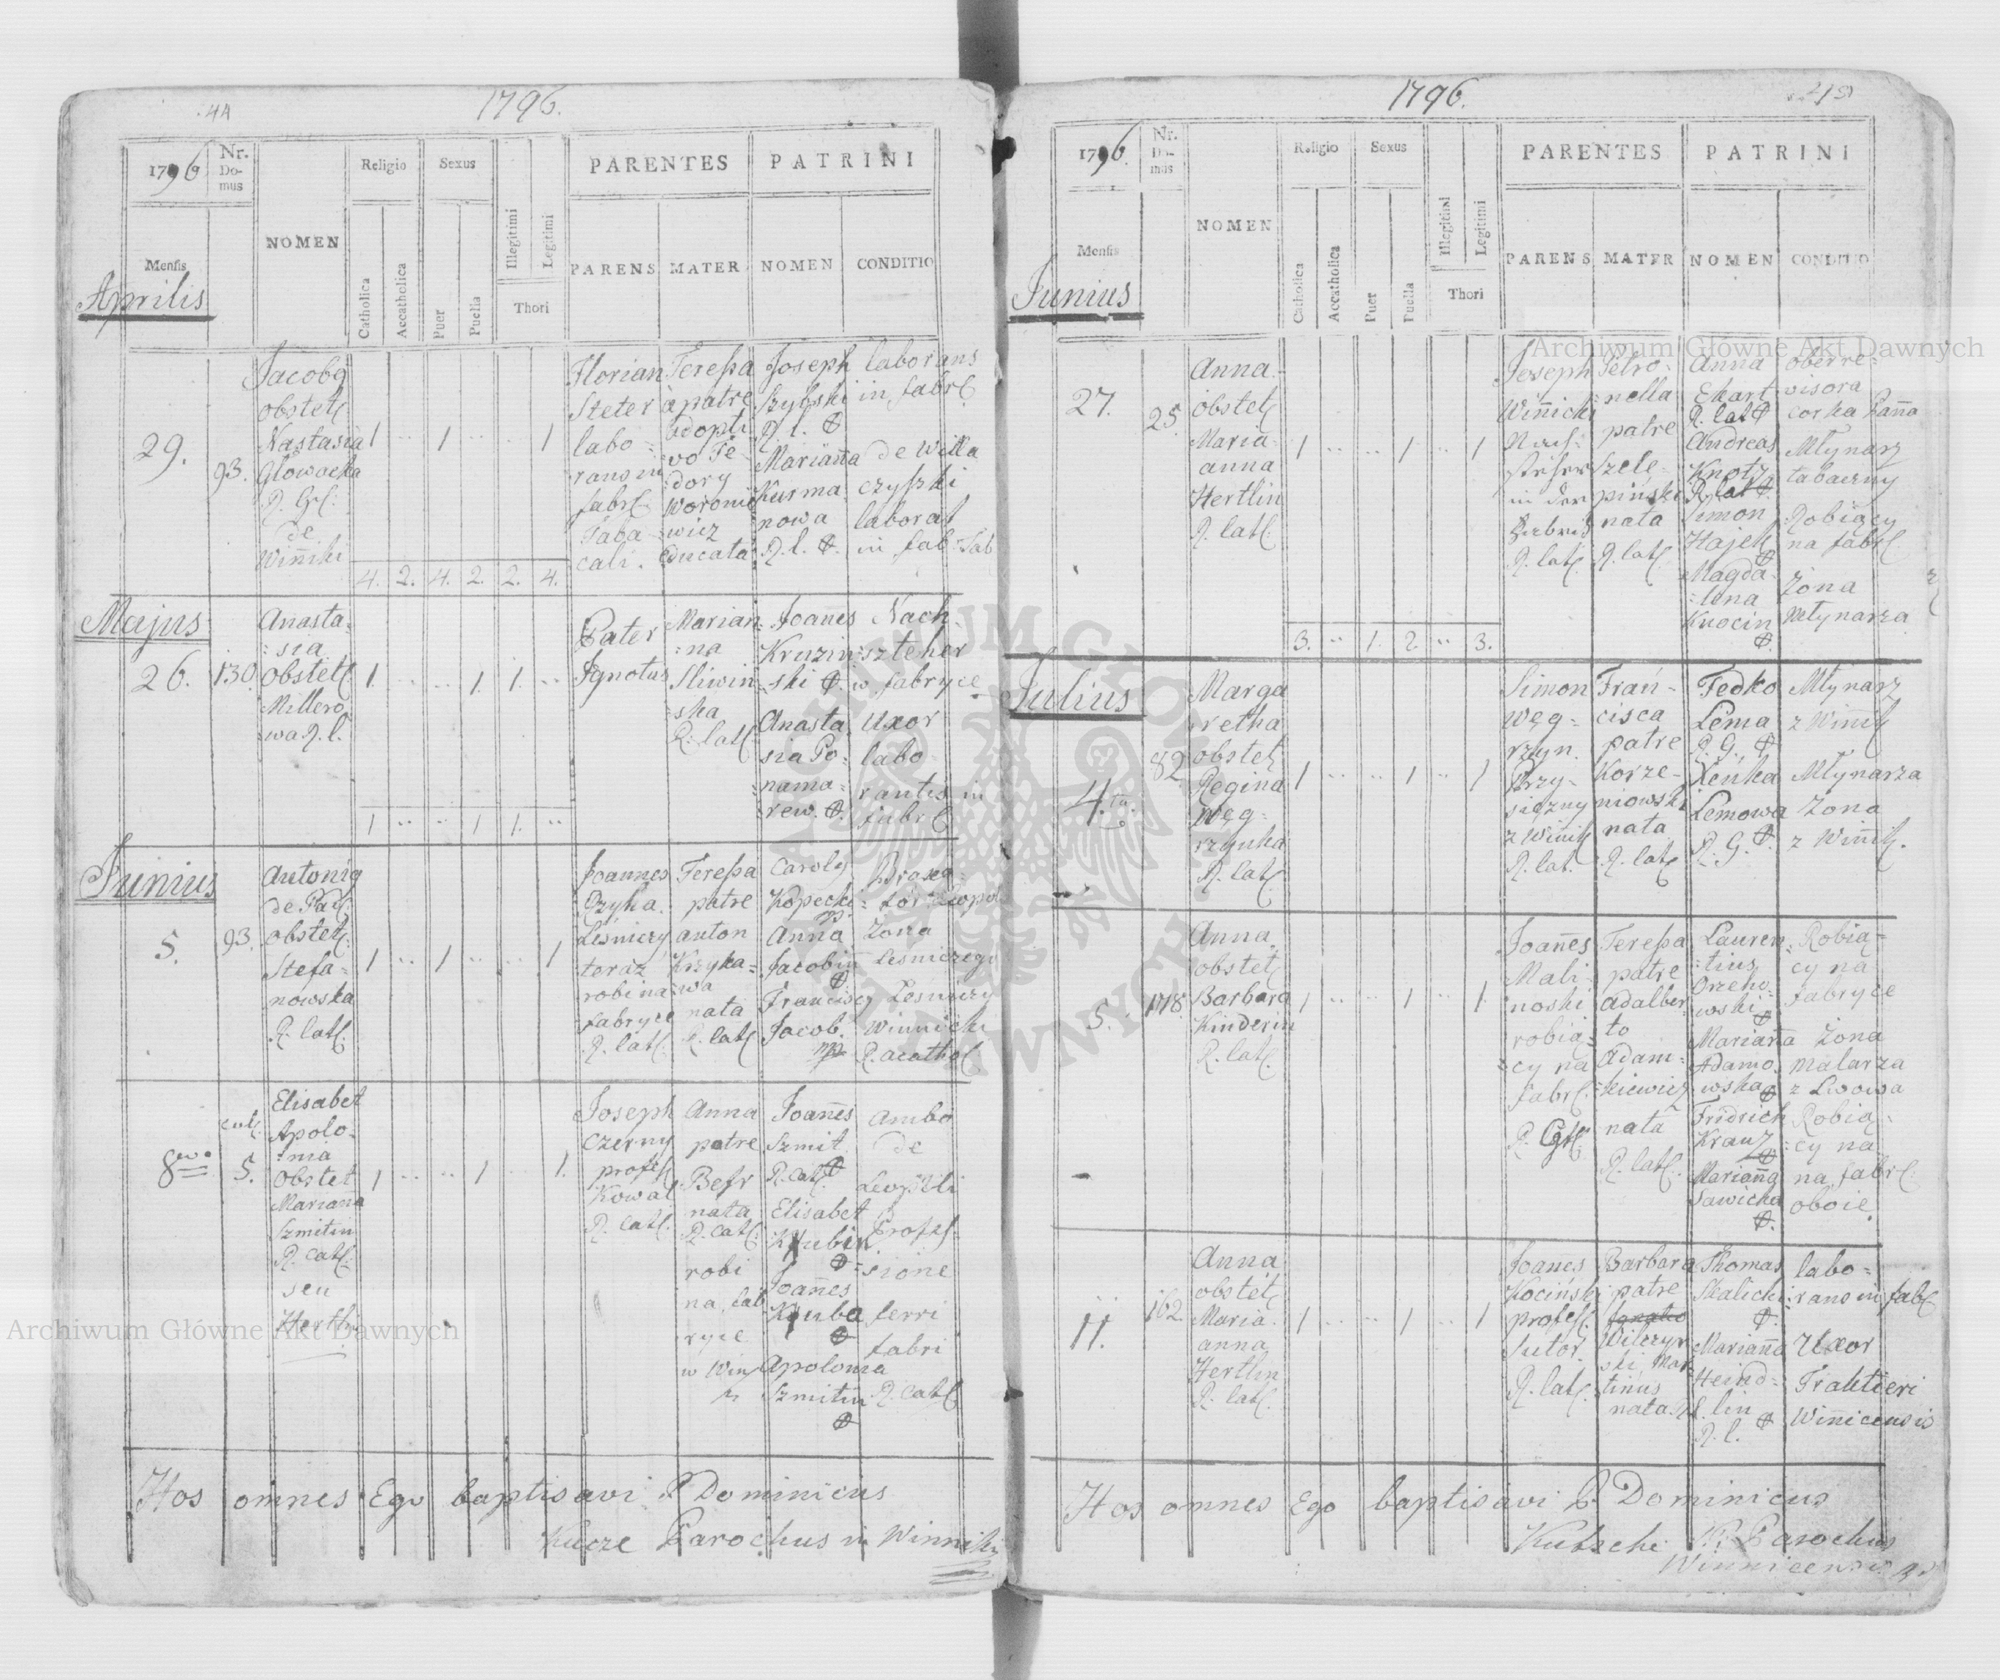 44
1796.
1796
Nr. Do- mus
NOMEN
Religio
Sexus
PARENTES
PATRINI
Mensis
Catholica
Accatholica
Puer
Puella
Illegitimi
Legitimi
Thori
PARENS
MATER
NOMEN
CONDITIO
Aprilis
29.
93.
Jacobg
obstet
Nastasia
Głowacka
R. Gr:
de
Winniki
1 .. 1 .. .. 1
Florian
Steter
labo =
rans in
fabr
Taba
cali.
Teressa
à patre
adopti
vo Te-
dory
Woronie
wicz
educata
Joseph
Szybski
R. l.
Marianna
Kurma
nowa
R. l.
laborans
in fabr
de Willa
czyski
laborat
in fab: Tab
4. 2. 4. 2. 2. 4.
Majus
26.
130.
Anasta=
= sia
obstet
Millero
wa R. l.
1. .. .. 1. 1. ..
Pater
Ignotus
Marian=
=na
Sliwin
=ska
R: lat
Joanes
Kruzin=
-ski
Anasta
sia Po=
=nama=
rew.
Nach-
szteher
w fabryce
Uxor
labo-
rantis in
fabr
1 .. .. 1 1. ..
Junius
5.
93.
Antonig
de Pad
obstet
Stefa=
nowska
R. lat
1 .. 1 .. .. 1
Joannes
Rzyha.
Leśniczy
teraz
robi na
fabryce
R. lat
Teressa
patre
anton
Krzyka=
=wa
nata
R. lat
Carolg
Kopecki
Anna
Jacobin
Franciscg
Jacob.
Żona
Leśniczego
Leśniczy
Winnicki
R. acathol
8vo
5.
Elisabet
Apolo-
=nia
obstet
Marianna
Szmitin
R. Cat
seu
Hertln
1 .. .. 1 .. 1.
Joseph
Czerny
profes
Kowal
R. Cat
Anna
patre
Befr
nata
R. Cat
robi
na fab
ryce
w Win
Joanes
Szmit
R. Cat
Elisabet
Joanes
Kouba
Apolonia
Szmitin
ambo
de
Leopoli
Profes-
=sione
ferri
fabri
R. Cat
Hos omnes Ego baptisavi P Dominicus
Kucze Parochus in Winniki
1796.
1796.
Nr. Do- mus
NOMEN
Religio
Sexus
PARENTES
PATRINI
Mensis
Catholica
Accatholica
Puer
Puella
Illegitimi
Legitimi
Thori
PARENS
MATER
NOMEN
CONDITIO
Junius
27.
25.
Anna
obstet
Maria-
anna
Hertlin
R. lat
1 .. .. 1 .. 1
Joseph
Winnicki
Nach-
steher
in der
Fabrik
R. lat
Petro-
=nella
patre
Szele-
piński
nata
R. lat
Anna
Ekart
R. lat
Andreas
Knotz
R. lat
Simon
Hajek
Magda=
=lena
Knocin
oberre-
visora
corka Panna
Młynarz
tabaczny
Robiący
na fabr
Żona
Młynarza
3. .. 1. 2 .. 3.
Julius
4ta
82
Marga
retha
obstet
Regina
Węg-
rzynka
R. lat
1 .. .. 1 .. 1
Simon
Węg-
rzyn
Przy-
siężny
z Winnik
R. lat.
Fran-
cisca
patre
Korze-
niowski
nata
R. lat
Fedko
Lema
R. G.
Xenka
Lemowa
R. G.
Młynarz
z Winnik
Młynarza
Żona
z Winnik.
5.
178.
Anna
obstet
Barbara
Kinderin
R. lat
1 .. .. 1 .. 1
Joannes
Mali-
noski
robią-
=cy na
fabr
Teressa
patre
Adalber
to
Adam-
=kiewicz
nata
R. lat
Lauren
=tius
Orzeho-
wski
Marianna
Adamo
wska
Fridrich
Krauz
Marianna
Sawicka
Robią-
cy na
fabryce
Żona
Malarza
z Lwowa
Robią-
cy na
na fabr
oboie
11.
162
Anna
obstet
Maria-
anna
Hertlin
R. lat
1 .. .. 1 .. 1
Joanes
Kociński
profes
Sutor
R. lat
Barbara
patre
Wilczyn
ski Mar
tinus
nata
Thomas
Skalicki
Marianna
Heind-
lin
R. l.
labo=
rans in fab
Uxor
Trakteri
Winnicensis
Hos omnes Ego baptisavi P. Dominicus
Kutsche Parochus
Winnicensis
Archiwum Główne Akt Dawnych
Archiwum Główne Akt Dawnych
ARCHIWUM GŁÓWNE AKT DAWNYCH